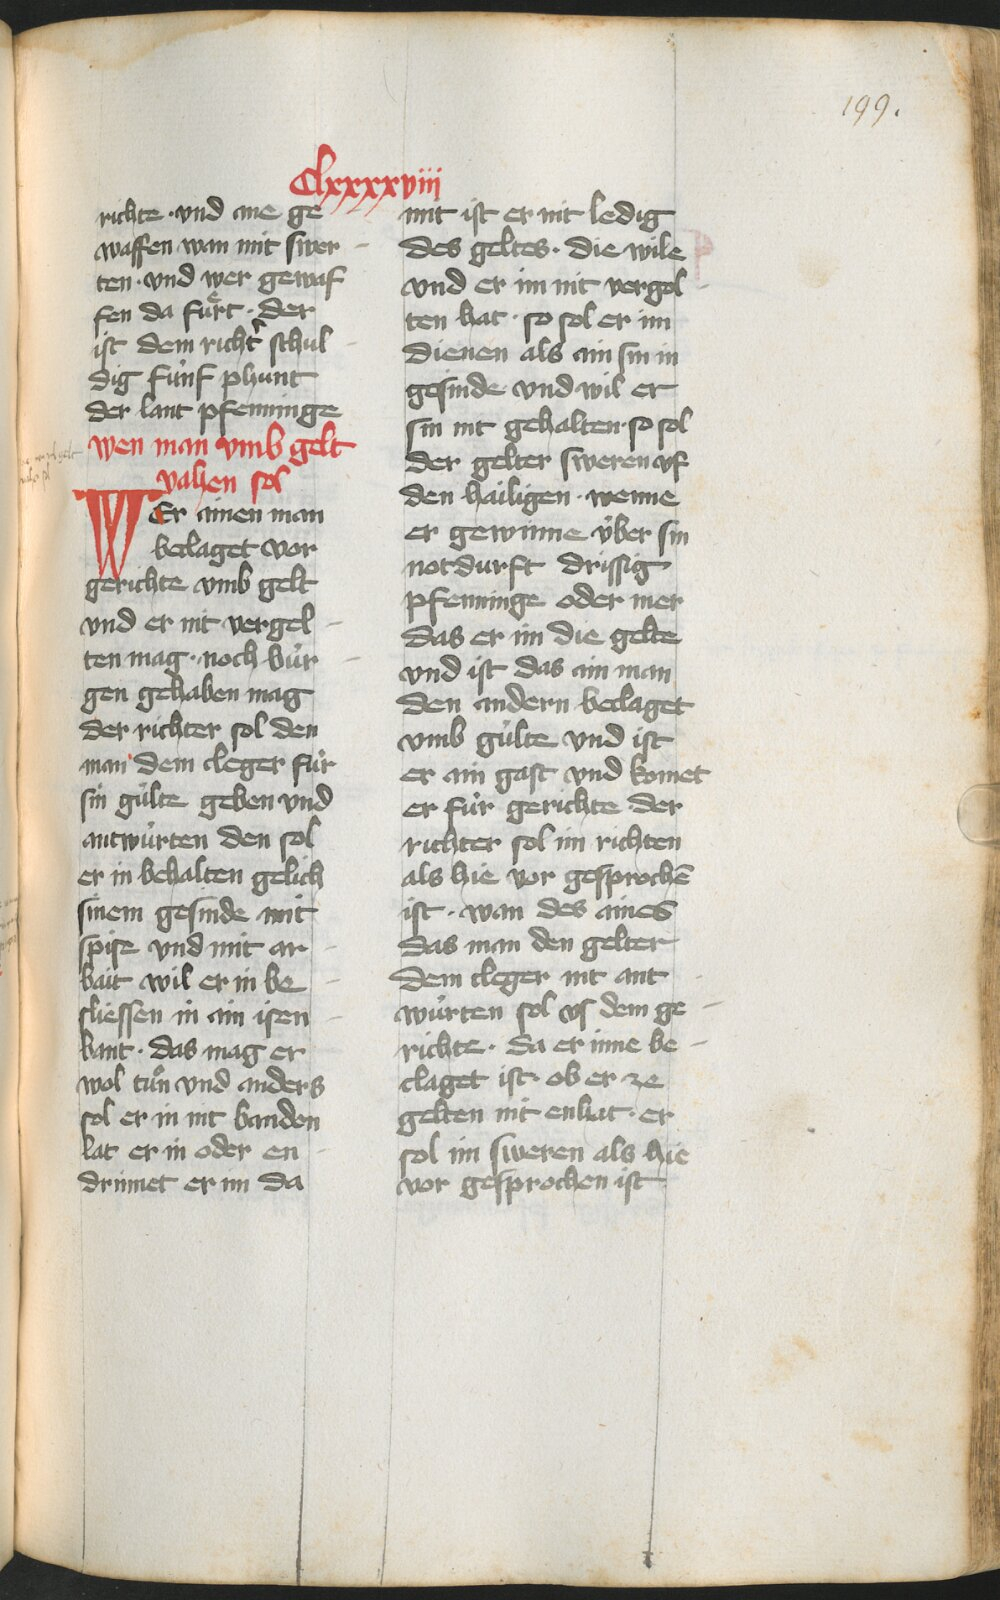 199.
Clxxxxviii
richte · vnd ane ge
waffen wan mit swer
ten · vnd wer gewaf
fen da fuͤrt · der
ist dem richt̾ schul
dig fúnf phunt
der lant pfenninge
wen man vmb gelt
vahen sol
WEr ainen man
beclaget vor
gerichte vmb gelt
vnd er nit vergel
ten mag · noch búr
gen gehaben mag
der richter sol den
man dem cleger fúr
sin gúlte geben vnd
antwúrten den sol
er in behalten gelich
sinem gesinde mit
spise vnd mit ar
bait wil er in be
sliessen in ain isen
bant · das mag er
wol tuͦn vnd anders
sol er in nit banden
lat er in oder en
drinnet er im da
mit ist er nit ledig
des geltes · die wile
vnd er im nit vergol
ten hat · so sol er im
dienen als ain sin in
gesinde vnd wil er
sin nit gehalten · so sol
der gelter sweren vf
den hailigen · wenne
er gewinne v́ber sin
notdurft drissig
pfenninge oder mer
das er im die gelte
vnd ist das ain man
den andern beclaget
vmb gúlte vnd ist
er ain gast vnd komet
er fúr gerichte der
richter sol im richten
als hie vor gesprochē
ist · wan des aines
das man den gelter
dem cleger nit ant
wúrten sol vs dem ge
richte · da er inne be
claget ist · ob er ze
gelten nit enhat · er
sol im sweren als hie
vor gesprochen ist